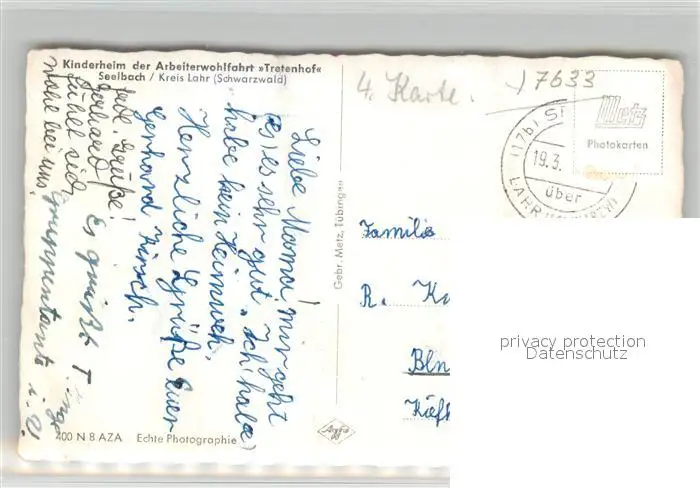 Kinderheim der Arbeiterwohlfahrt »Tretenhof«
Seelbach / Kreis Lahr (Schwarzwald)
Liebe Mama! Mir geht
es sehr gut. Ich habe
habe kein Heimweh.
Herzliche Grüße Euer
Gerhard
Grüße!
Gerhard
fühlt sich
wohl bei uns.
Es grüßt
Gruppentante
400 N 8 AZA Echte Photographie
Gebr. Metz, Tübingen
Agfa
4. Karte.
7633
Metz
Photokarten
(17b)
19.3.
über
LAHR
Familie
R.
Bln
privacy protection
Datenschutz